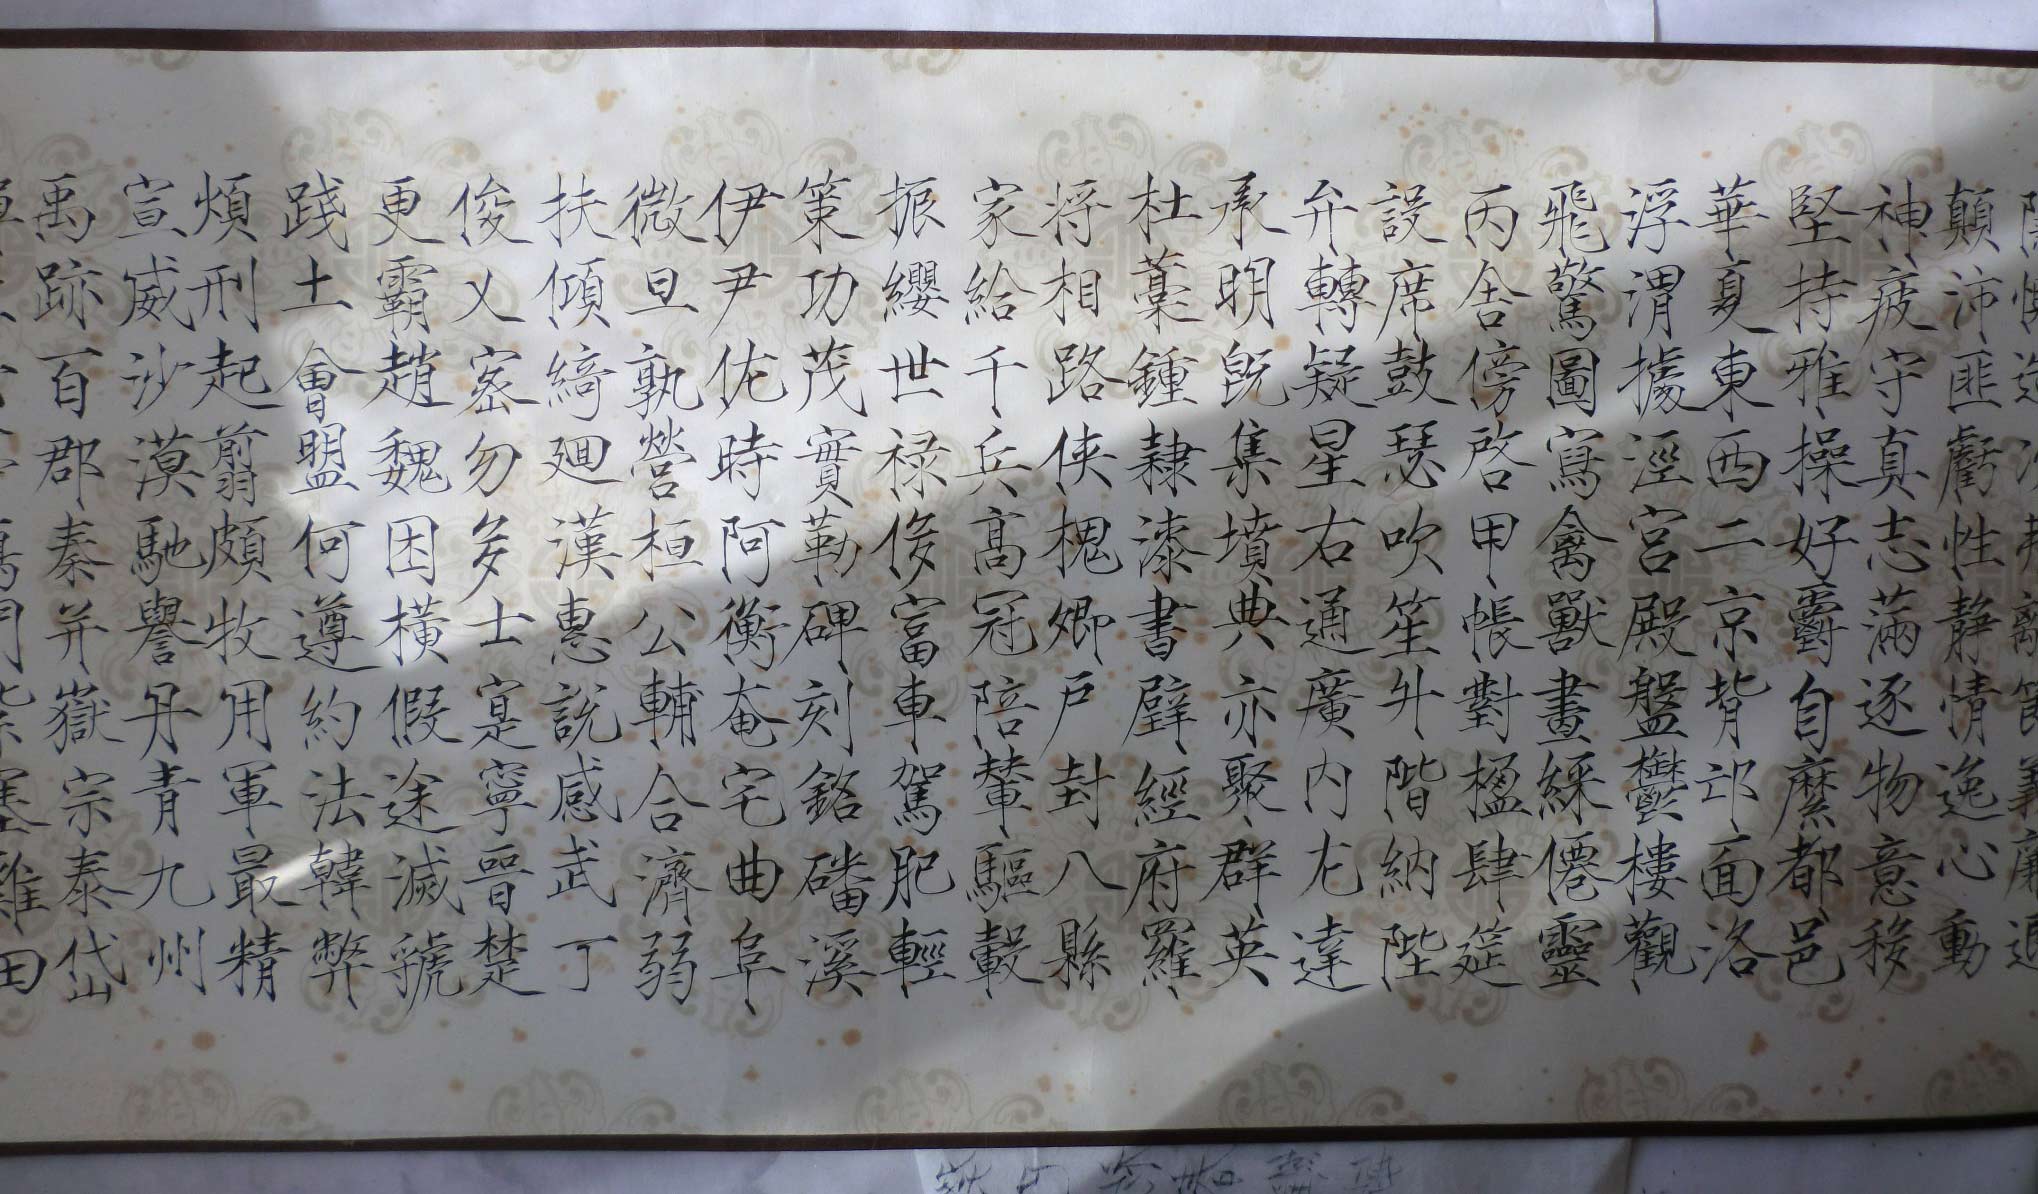 顛沛匪虧性静情逸心動
神疲守真志滿逐物意移
堅持雅操好爵自縻都邑
華夏東西二京背邙面洛
浮渭據涇宮殿盤鬱樓觀
飛驚圖寫禽獸畫綵僊靈
丙舍傍啓甲帳對楹肆筵
設席鼓瑟吹笙升階納陛
弁轉疑星右通廣内左達
承明既集墳典亦聚群英
杜稾鍾隸漆書壁經府羅
将相路俠槐卿戶封八縣
家給千兵高冠陪輦驅轂
振纓世禄侈富車駕肥輕
策功茂實勒碑刻銘磻溪
伊尹佐時阿衡奄宅曲阜
微旦孰營桓公輔合濟弱
扶傾綺廻漢惠說感武丁
俊乂密勿多士寔寧晉楚
更霸趙魏困橫假途滅虢
踐土會盟何遵約法韓弊
煩刑起翦頗牧用軍最精
宣威沙漠馳譽丹青九州
禹跡百郡秦并嶽宗泰岱
門紫塞雞田